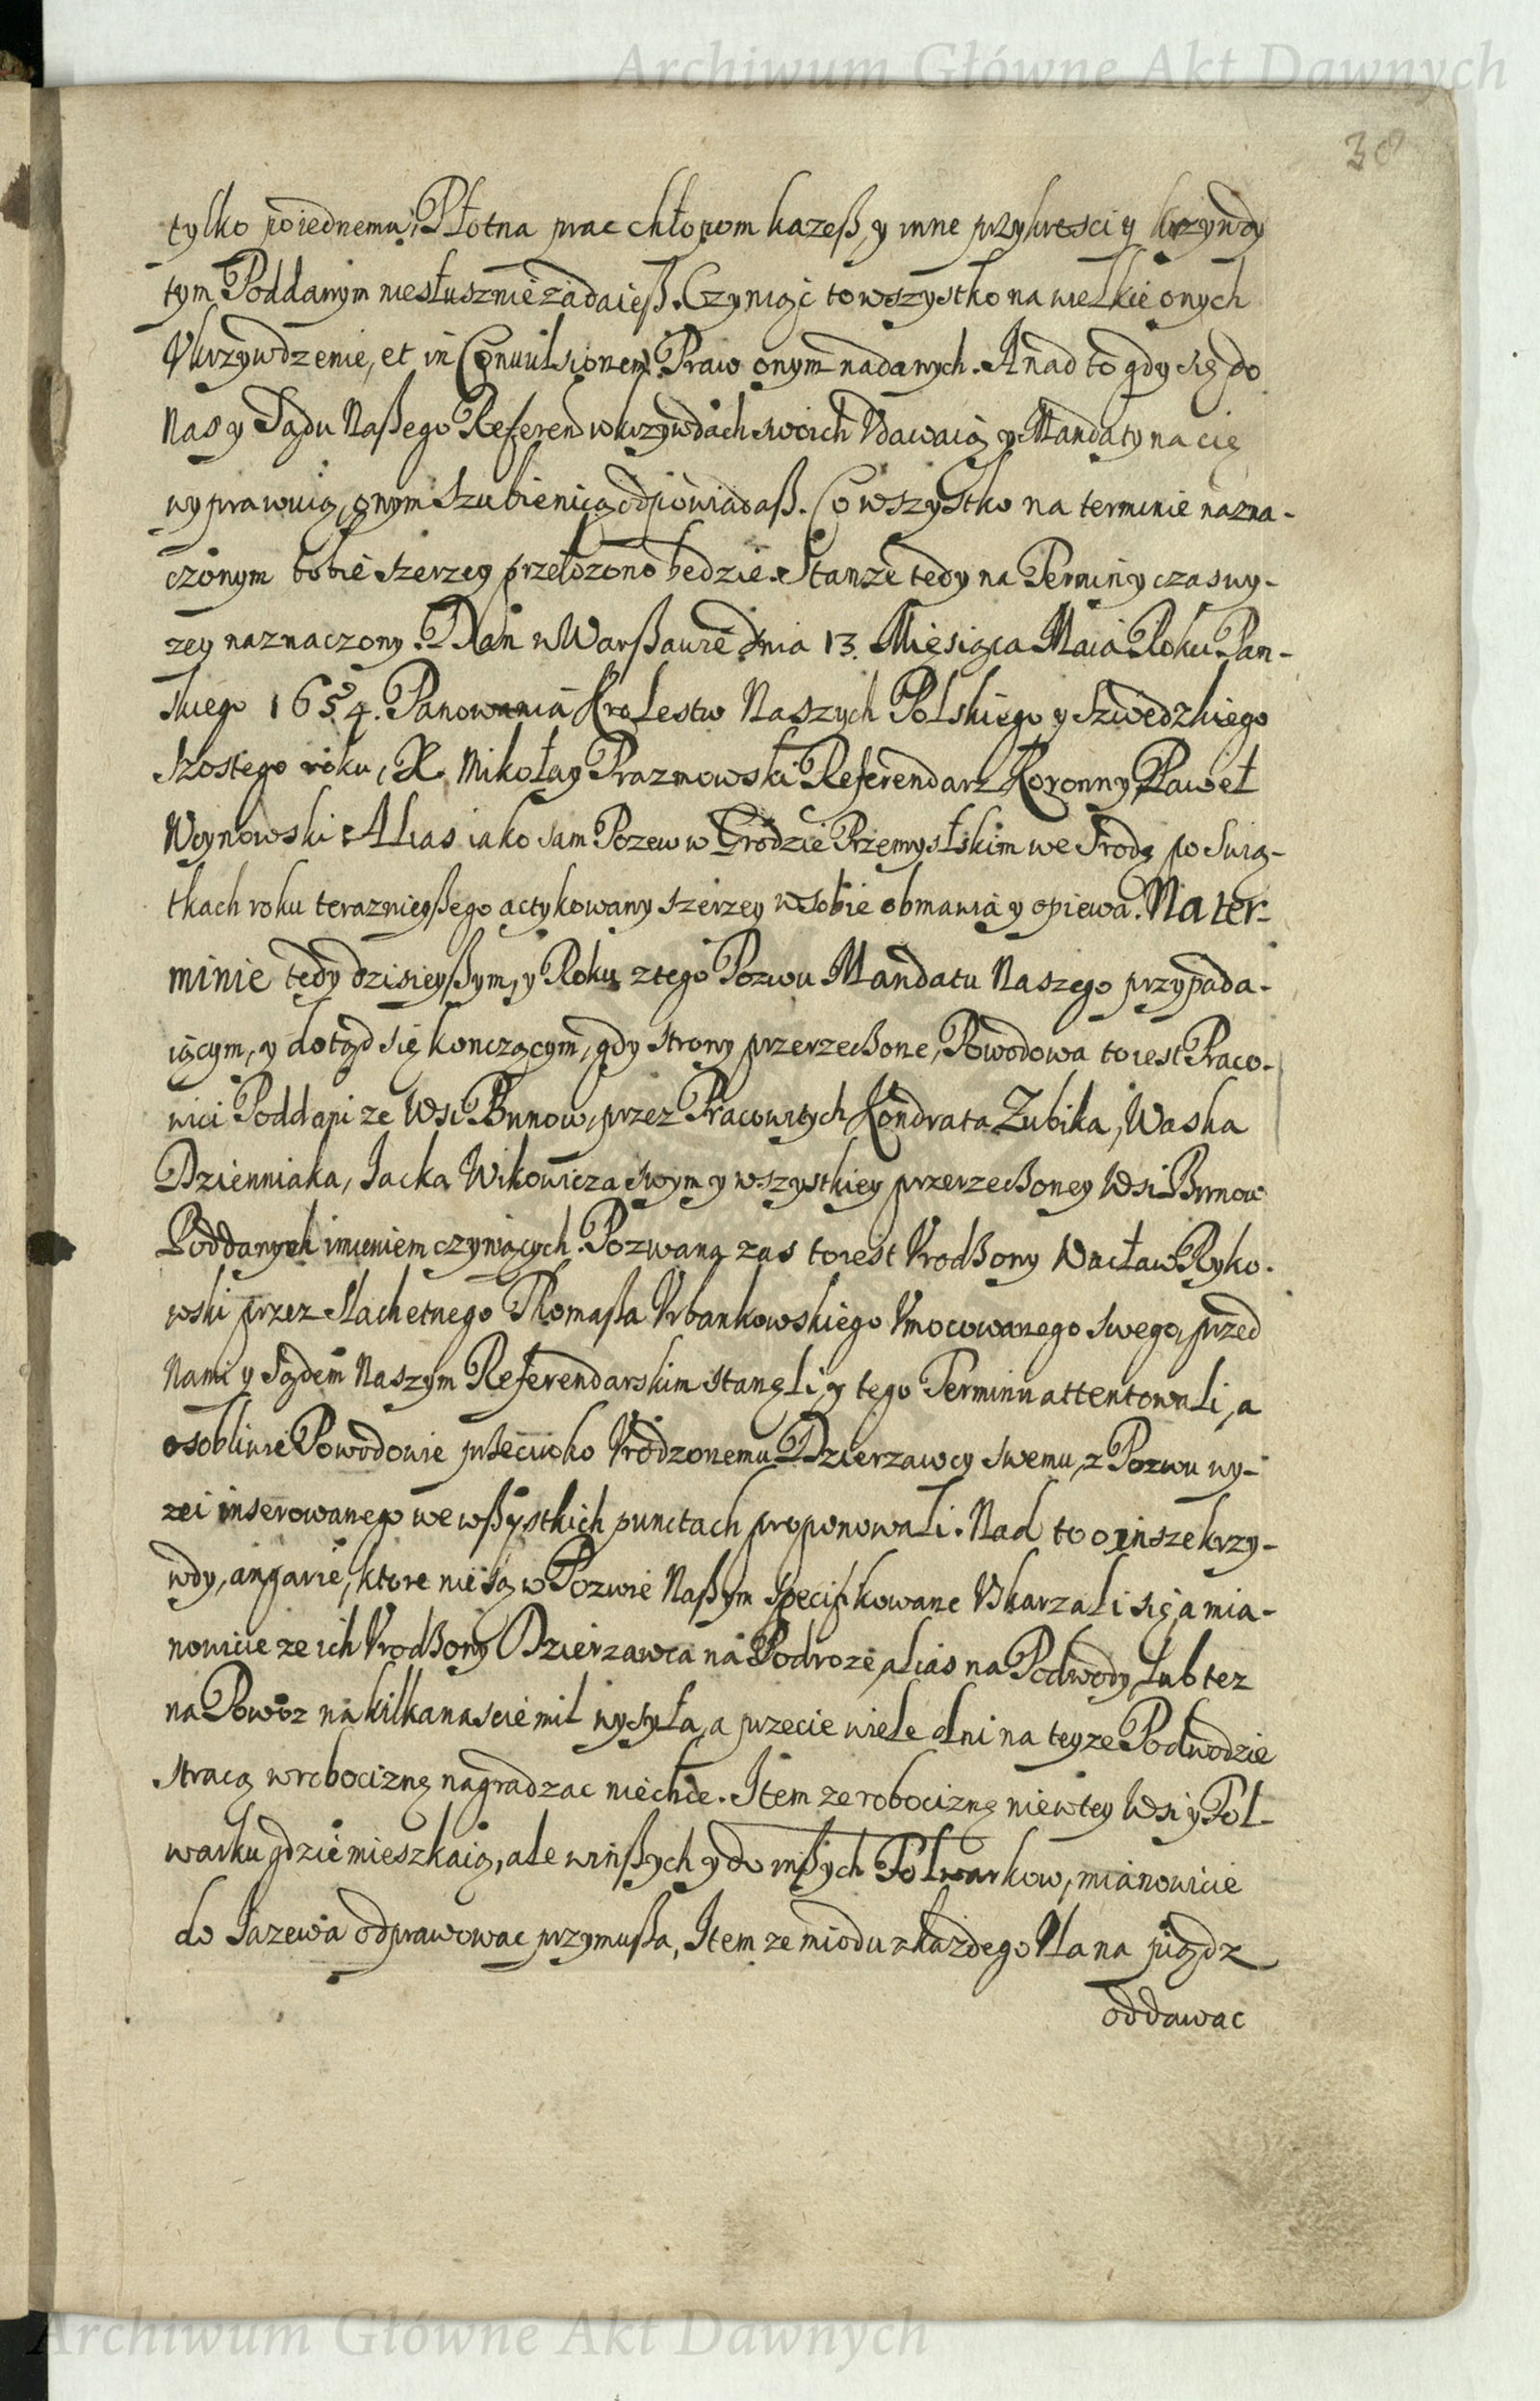 Archiwum Główne Akt Dawnych
38
tylko poiednemu, Płotna prac chłopom kazeß, y inne przykrosci y krzywdy
tym Poddanym niesłusznie zadaieß. Czyniąc to wszystko na wielkie onych
Vkrzywdzenie, et in Convulsionem Praw onym nadanych. A nad to gdy się do
Nas y Sądu Naßego Referen w krzywdach swoich Vdawaią y Mandaty na cię
wyprawuią, onym szubienicą odpowiadaß. Co wszystko na terminie nazna-
czonym tobie szerzey przełozono bedzie. Stanze tedy na Termin y czas wy-
zey naznaczony. Dan w Warßawie dnia 13. Miesiąca Maia Roku Pan-
skiego 1654. Panowania Krolestw Naszych Polskiego y Szwedzkiego
szostego roku, X. Mikołay Prazmowski Referendarz Koronny, Paweł
Woynowski Alias iako sam Pozew w Grodzie Przemyslskim we Srodę po Swią-
tkach roku teraznieyßego actykowany szerzey w sobie obmawia y opiewa. Na ter-
minie tedy dzisieyßym, y Roku z tego Pozwu Mandatu Naszego przypada-
iącym, y dotąd się konczącym, gdy strony przerzeczone, Powodowa to iest Praco-
wici Poddani ze Wsi Bunow, przez Pracowitych Kondrata Zubika, Waska
Dzienniaka, Jacka Wikowicza swym y wszystkiey przerzeczoney Wsi Bunow
Poddanych imieniem czyniących. Pozwana zas to iest Vrodzony Wacław Ryko-
wski przez slachetnego Thomaßa Vrbankowskiego Vmocowanego swego, przed
Nami y Sądem Naszym Referendarskim stanęli, y tego Terminu attentowali, a
osobliwie Powodowie przeciwko Vrodzonemu Dzierzawcy swemu, z Pozwu wy-
zei inserowanego we wßystkich punctach proponowali. Nad to o insze krzy-
wdy, angarie, ktore nie są w Pozwie Naßym specifikowane Vskarzali się, a mia-
nowicie ze ich Vrodzony Dzierzawca na Podroze, alias na Podwody, lub tez
na Powoz na kilkanascie mil wysyła, a przecie wiele dni na teyze Podwodzie
stracą w robociznę nagradzac niechce. Item ze robociznę nie w tey Wsi y Fol-
warku gdzie mieszkaią, ale w inßych y do inßych Folwarkow, mianowicie
do Jazewa odprawowac przymußa, Item ze miodu z kazdego Łana piądz
oddawac
Archiwum Główne Akt Dawnych